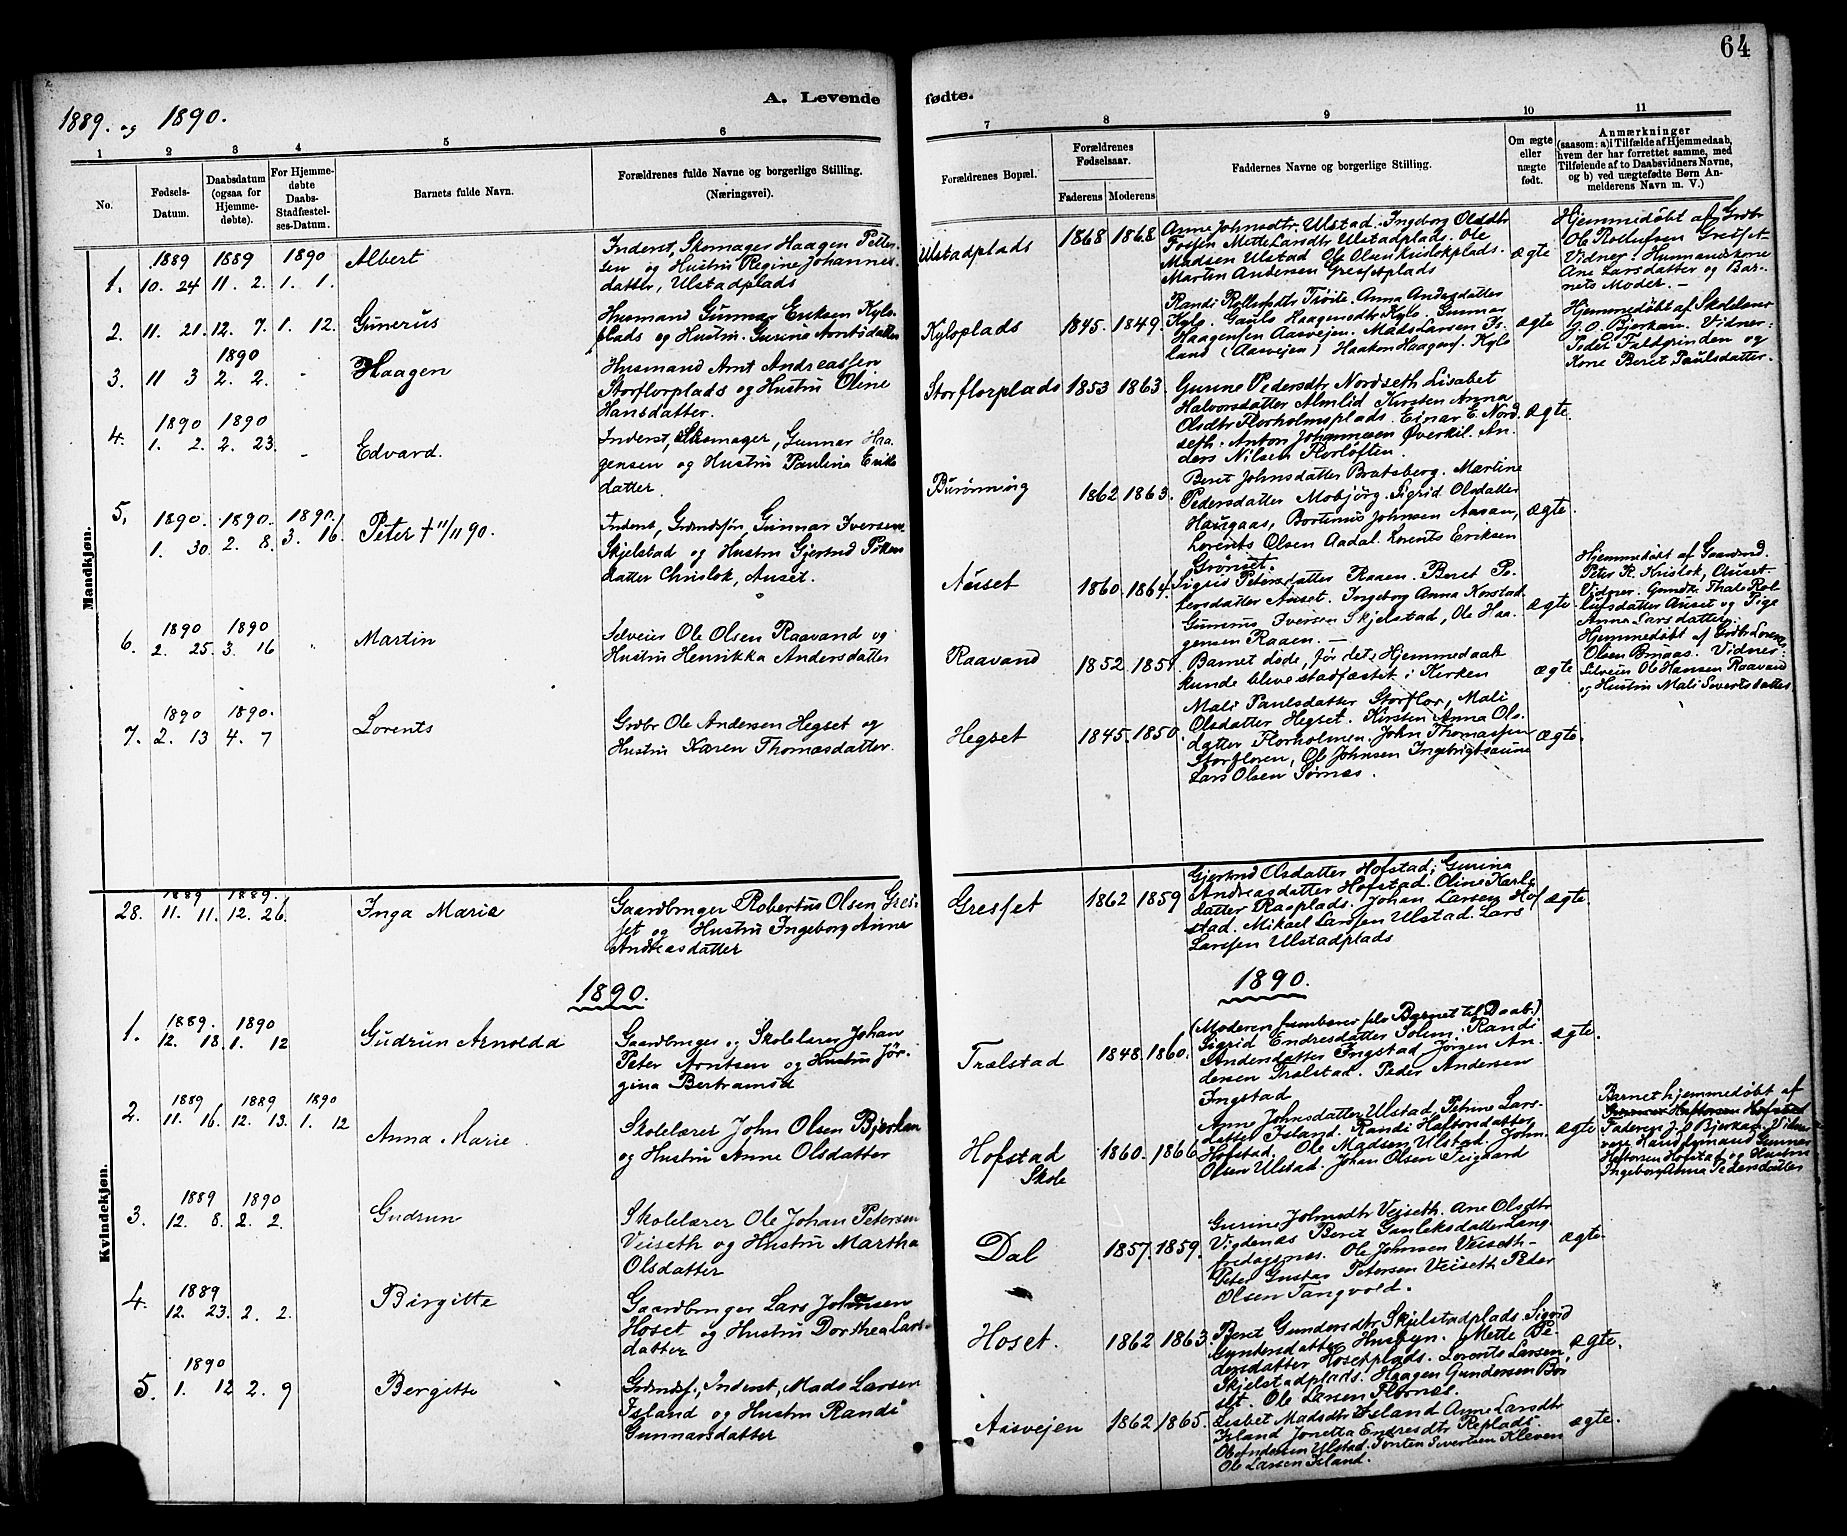 64
1889. og 1890.
A. Levende fødte.
1 2 3 4 5 6 7 8 9 10 11
No.
Fødsels-
Datum.
Daabsdatum
(ogsaa for
Hjemme-
døbte).
For Hjemme-
døbte
Daabs-
Stadfæstel-
ses-Datum.
Barnets fulde Navn.
Forældrenes fulde Navne og borgerlige Stilling.
(Næringsvei).
Forældrenes Bopæl.
Forældrenes
Fødselsaar.
Faderens Moderens
Faddernes Navne og borgerlige Stilling.
Om ægte
eller
uægte
født.
Anmærkninger
(saasom: a) I Tilfælde af Hjemmedaab,
hvem der har forrettet samme, med
Tilføiende af to Daabsvidners Navne,
og b) ved uægtefødte Børn An-
melderens Navn m. V.)
Mandkjøn.
1889 1889 1890
1. 10. 24 11. 2. 1. 1.
Albert
Inderst, Skomager Haagen Peter-
sen og Hustru Regine Johannes-
dattr, Ulstadplads
Ulstadplads
1868 1868
Anne Johnsdtr. Ulstad. Ingeborg Olsdtr
Mette Larsdtr Ulstadplads. Ole
Madsen Ulstad Ole Olsen
Martin Andersen Gresetplads
ægte
Hjemmedøbt af Grdbr
Ole Rollufsen Greset
Vidner: Husmandskone
Ane Larsdatter og Bar-
nets Moder. —
2. 11. 21. 12. 7. 1. 12.
Gunerus
Husmand Gunnar Eriksen Kylo-
plads og Hustru Gurine Arntsdatter
Kyloplads
1845. 1849.
Randi Rollufsdtr Trøite. Anna Andersdatter
Kylo. Haagensdtr Kylo. Gunnar
Haagensen Aasvejen. Mads Larsen Is-
land (Aasvejen) Haakon Haagens. Kylo
ægte
Hjemmedøbt af Skolelærer
J. O. Bjerkan. Vidner:
Peder Faldgrinden og
Kone Beret Paulsdatter.
1890
3. 11 3 2. 2. "
Haagen
Husmand Arnt Andreassen
Storflorplads og Hustru Oline
Hansdatter.
Storflorplads
1853 1863.
Gunne Pedersdtr Nordseth Lisabet
Halvorsdatter Almlid Kirsten Anna
Olsdtr Florholmsplads. Einar E. Nord-
seth. Anton Johannesen Øverkil. An-
ders Nilsen Florløften.
ægte.
1890 1890
4. 1. 2. 2. 23. "
Edvard.
Inderst, Skomager, Gunnar Haa-
gensen og Hustru Paulina Eriks
datter.
Burønning
1862 1863.
Beret Johnsdatter Bratsberg. Martine
Pedersdatter Mobjørg. Sigrid Olsdatter
Haugaas, Bortinus Johnsen Aasan,
Lorents Olsen Aadal. Lorents Eriksen
Grønset.
ægte.
1890. 1890. 1890.
5. 1. 30. 2. 8. 3. 16.
Peter † 11/11 90.
Inderst, Grdmdssøn, Gunnar Iversen
Skjelstad og Hustru Gjertrud Peters
datter Chrislok, Auset.
Auset
1860. 1864.
Sigrid Petersdatter Raaen. Beret Pe-
tersdatter Auset. Ingeborg Anna Korstad
Gunerus Iversen Skjelstad, Ole Haa-
gensen Raaen. —
ægte
Hjemmedøbt af Gaardmd.
Peter R. Krislok, Auset.
Vidner. Grmdte Thale Rol-
lufsdatter Auset og Pige
Anna Larsdatter.
1890 1890
6. 2. 25. 3. 16 "
Martin
Selveier Ole Olsen Raavand og
Hustru Henrikka Andersdatter
Raavand
1852. 1851.
Barnet døde, før det: Hjemmedaab
kunde blive stadfæstet i Kirken
ægte
Hjemmedøbt af Grdbr Lorents
Olsen Bruaas. Vidner:
Selveier Ole Hansen Raavand
og Hustru Mali Sivertsdatter
1890 1890.
7. 2. 13 4. 7
Lorents
Grdbr Ole Andersen Hegset og
Hustru Karen Thomasdatter.
Hegset
1845. 1850.
Mali Paulsdatter Storflor, Mali
Olsdatter Hegset. Kirsten Anna Ols-
datter Florholmen. John Thomassen
Storfloren, Ole Johnsen Ingebrigtsaune
Lars Olsen Sørnæs.
ægte.
Kvindekjøn.
1889 1889.
28. 11. 11. 12. 26.
Inga Marie
Gaardbruger Robertus Olsen Gres-
set og Hustru Ingeborg Anne
Andreasdatter
Gresset
1862 1859
Gjertrud Olsdatter Hofstad; Gurina
Andreasdatter Hofstad. Oline Karls
datter Raaplads. Johan Larsen Hof
stad. Mikael Larssen Ulstad. Lars
Larssen Ulstadplads
ægte.
1890.
1890.
1889. 1890
1. 12. 18. 1. 12
Gudrun Arnolda
Gaardbruger og Skolelærer Johan
Peter Arntsen og Hustru Jør-
gina Bertramsd
Trælstad
1848. 1860.
(Moderen frembærer selv Barnet til Daab.)
Sigrid Endresdatter Solem. Randi
Andersdatter Ingstad, Jørgen An-
dersen Trælstad. Peder Andersen
Ingstad
ægte.
1889 1889 1890
2. 11. 16. 12. 13. 1. 12
Anna Marie.
Skolelærer John Olsen Bjerkan
og Hustru Anne Olsdatter
Hofstad
Skole
1860. 1866
Anne Johnsdatter Ulstad, Petrine Lars-
datter Island. Randi Haftorsdatter
Hofstad, Ole Madsen Ulstad. John
Olsen Ulstad. Johan Olsen Feigaard
ægte
Barnet hjemmedøbt af
Gunnar Haftorsen Hofstad
Faderen J. O Bjerkan. Vidner
vare Handelsmand Gunnar
Haftorsen Hofstad og Hustru
Ingeborg Anna Pedersdatter
1889 1890
3. 12. 8. 2. 2.
Gudrun
Skolelærer Ole Johan Petersen
Veiseth og Hustru Martha
Olsdatter
Dal
1857. 1859.
Gurine Johnsdtr Veiseth. Ane Olsdtr
Vigdenæs Beret Lang
Ole Johnsen Veiseth-
Peter Gustav Petersen Veiseth Peder
Olsen Tangvold.
ægte.
1889
4. 12. 23. 2. 2.
Birgitte
Gaardbruger Lars Johnsen
Hoset og Hustru Dorthea Lars-
datter
Hoset.
1862 1863.
Beret Gundersdtr Skjelstadplads. Sigrid
Gundersdatter Husbyn. Mette Pe-
dersdatter Hosetplads. Lorents Larsen,
Skjelstadplads. Haagen Gundersen Bor-
set. Ole Larsen Flornæs.
ægte.
1890
5. 1. 12 2. 9
Bergitte
Grdmdsf. Inderst, Mads Larsen
Island og Hustru Randi
Gunnarsdatter
Aasvejen
1862 1865.
Lisbet Madsdtr Island Anne Larsdtr
Island Jonetta Endresdtr Replads.
Ole Andersen Ulstad. Torsten Sivertsen Kleven
Ole Larsen Island.
ægte.